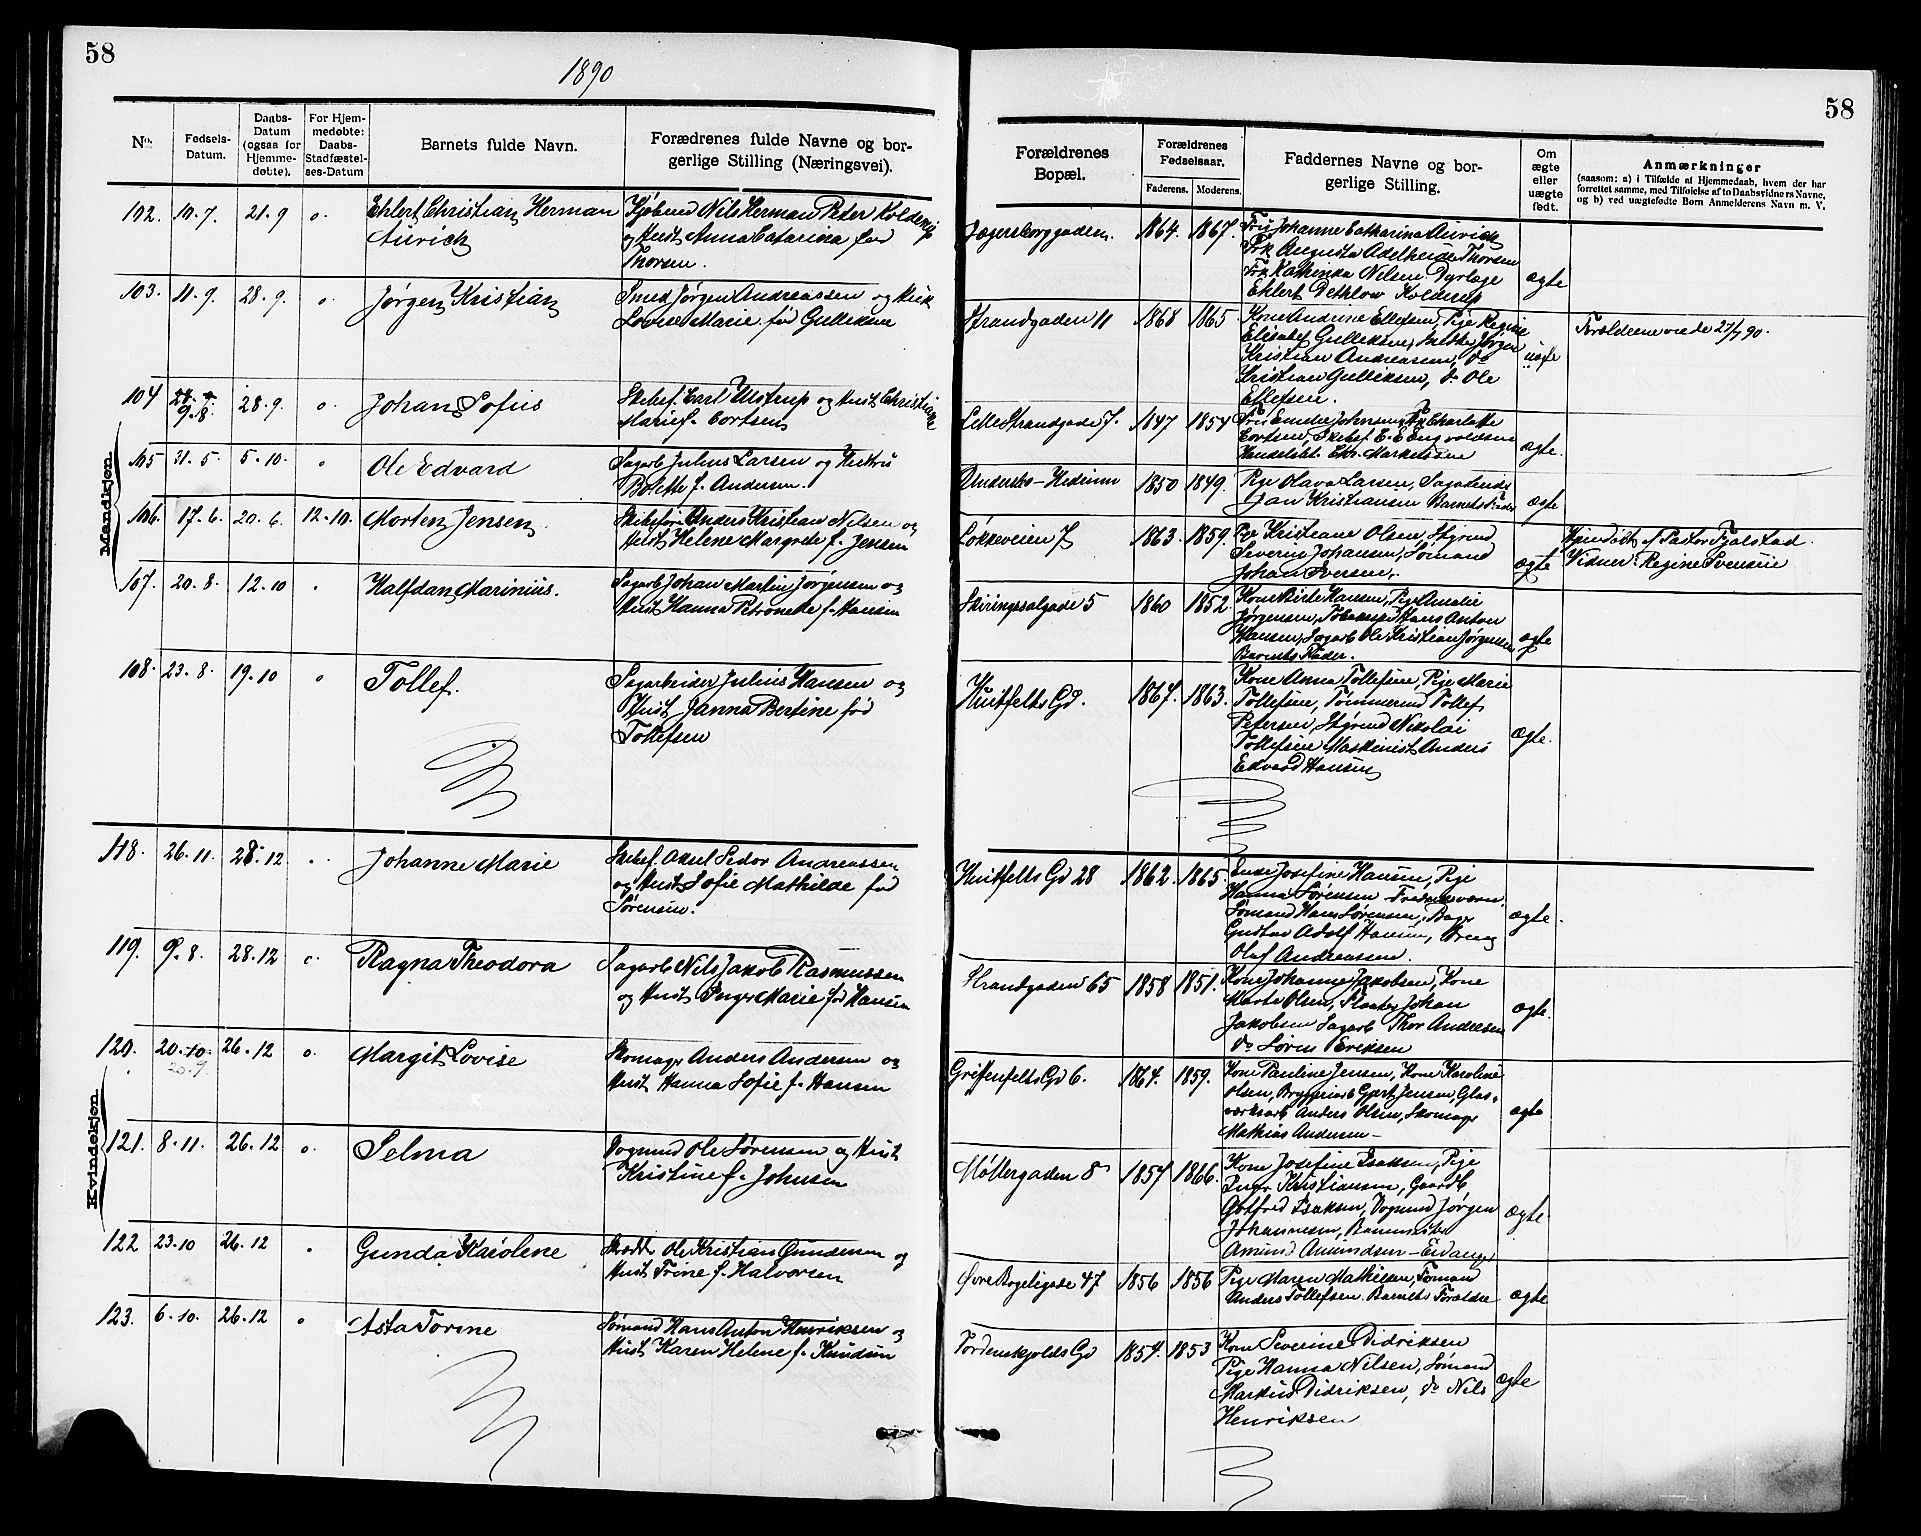 58
1890
58
No.
Fødsels-
Datum.
Daabs-
Datum
(ogsaa for
Hjemme-
døbte).
For Hjem-
medøbte:
Daabs-
Stadfæstel-
ses-Datum
Barnets fulde Navn.
Forædrenes fulde Navne og bor-
gerlige Stilling (Næringsvei).
Forældrenes
Bopæl.
Forældrenes
Fødselsaar.
Faderens. Moderens.
Faddernes Navne og bor-
gerlige Stilling.
Om
ægte
eller
uægte
født.
Anmærkninger
(saasom: a) i Tilfælde af Hjemmedaab, hvem der har
forrettet samme, med Tilføielse af to Daabsvidners Navne,
og b) ved uægtefødte Børn Anmelderens Navn m. V.
Mandkjøn.
102. 10.7. 21.9 o. Ehlert Christian Herman
Aurick
Kjøbmd Nils Herman Peter Kolderup
og Hust Anna Catarina fød
Thorsen.
Jægersborggaden. 1864. 1867.
Fru Johanne Catharina Aurick
Frk Augusta Adelheide Thorsen
Frk Kathinka Nilsen Dyrlæge
Ehlert Dethlow Kolderup
ægte
103. 11.9. 28.9. o Jørgen Kristian
Smed Jørgen Andreassen og Hust
Lovise Marie fød Gulliksen
Strandgaden 11 1868 1865.
Kone Andrine Ellefsen, Pige Regine
Elisabet Gulliksen,
Kristian Andreasen, do
Kristian Gulliksen, do Ole
Ellefsen.
uægte
Forældrene viede 27/7 90.
104 9.8. 28.9. o Johan Sofus
Skibsf. Carl Ulstrup og Hust Christiane
Marie f. Cortsen
Lille Strandgade 7. 1847 1854
Fru Emilie Johnsen, Frk Charlotte
Cortsen, Skibsf. E. Engvoldsen
Handelsbt. Chr. Markussen
ægte.
105 31.5. 5.10. o Ole Edvard
Sagarb Julius Larsen og Hustru
Bolette f. Andersen.
1850 1849.
Pige Olava Larsen,
Jan Kristiansen Barnets Fader
ægte
106. 17.6. 20.6. 12.10. Morten Jensen
Skibsfører Anders Kristian Nilsen og
Hust Helene Margrete f. Jensen
Løkkeveien 7 1863. 1859.
Kristiane Olsen, Styrmd
Severin Johansen, Sømand
Johan Iversen.
ægte
Hjemdøbt af Pastor Fjalstad.
Vidner: Regine Svensen
107. 20.8. 12.10 Halfdan Marinius.
Sagarb Johan Martin Jørgensen og
Hust Hanna Petronelle f. Hansen
Skiringssalgade 5 1860 1852.
Kone Birte Hansen, Pige Amalie
Jørgensen, Hans Anton
Hansen, Sagarb Ole Kristian Jørgensen
Barnets Fader.
ægte
108. 23.8. 19.10 o Tollef.
Sagarbeider Julius Hansen og
Hust Janna Bertine fød
Tollefsen
Huitfelts Gd. 1867. 1863.
Kone Anna Tollefsen, Pige Marie
Tollefsen, Tømmermd Tollef
Petersen, Styrmd Nikolai
Tollefsen Maskinist Anders
Edvard Hansen
ægte.
Kvindekjøn.
118. 26.11. 28.12. Johanne Marie
Skibsf. Aksel Sedor Andreassen
og Hust Sofie Mathilde fød
Sørensen.
Huitfelts Gd 28 1862. 1865.
Enke Josefine Hansen, Pige
Hanna Sørensen Fredriksværn.
Sømand Hans Sørensen, Bager
Gustav Adolf Hansen,
Olaf Andreassen.
ægte.
119. 9.8. 28.12 o. Ragna Theodora
Sagarb Nils Jakob Rasmussen
og Hust Inger Marie fød Hansen
Strandgaden 65 1858 1851.
Kone Johanne Jakobsen, Kone
Marte Olsen, Slagter Johan
Jakobsen Sagarb Thor Andersen
do Søren Eriksen
ægte.
120. 20.10. 26.12 o. Margit Lovise
20.9.
Skomagr Anders Andersen og
Hust Hanna Sofie f. Hansen
Griffenfelts Gd 6. 1864. 1859.
Kone Pauline Jensen, Kone Karoline
Olsen, Bryggeriarb Gjert Jensen, Glas-
værksarb Anders Olsen, Skomagr
Mathias Andersen -
ægte
121. 8.11. 26.12 o. Selma
Vognmd Ole Sørensen og Hust
Kristine f. Johnsen
Møllergaden 8 1857 1866.
Kone Josefine Isaksen, Pige
Inger Kristiansen, Gaardb
Gotfred Isaksen, Vognmd Jørgen
Johannesen,
Amund Amundsen - Eidanger
ægte.
122 23.10 26.12 Gunda Karolene
Skrædd Ole Kristian Gundersen og
Hust Trine f. Halvorsen
Øvre Bøgeligade 47 1856 1856
Pige Maren Mathilsen, Sømand
Anders Tollefsen. Barnets Forældre
ægte
123. 6.10. 26.12 o Asta Torine
Sømand Hans Anton Henriksen og
Hust Karen Helene f. Knudsen
Tordenskjolds Gd 1857. 1853
Kone Severine Didriksen
Pige Hanna Nilsen, Sømand
Markus Didriksen, do Nils
Henriksen
ægte